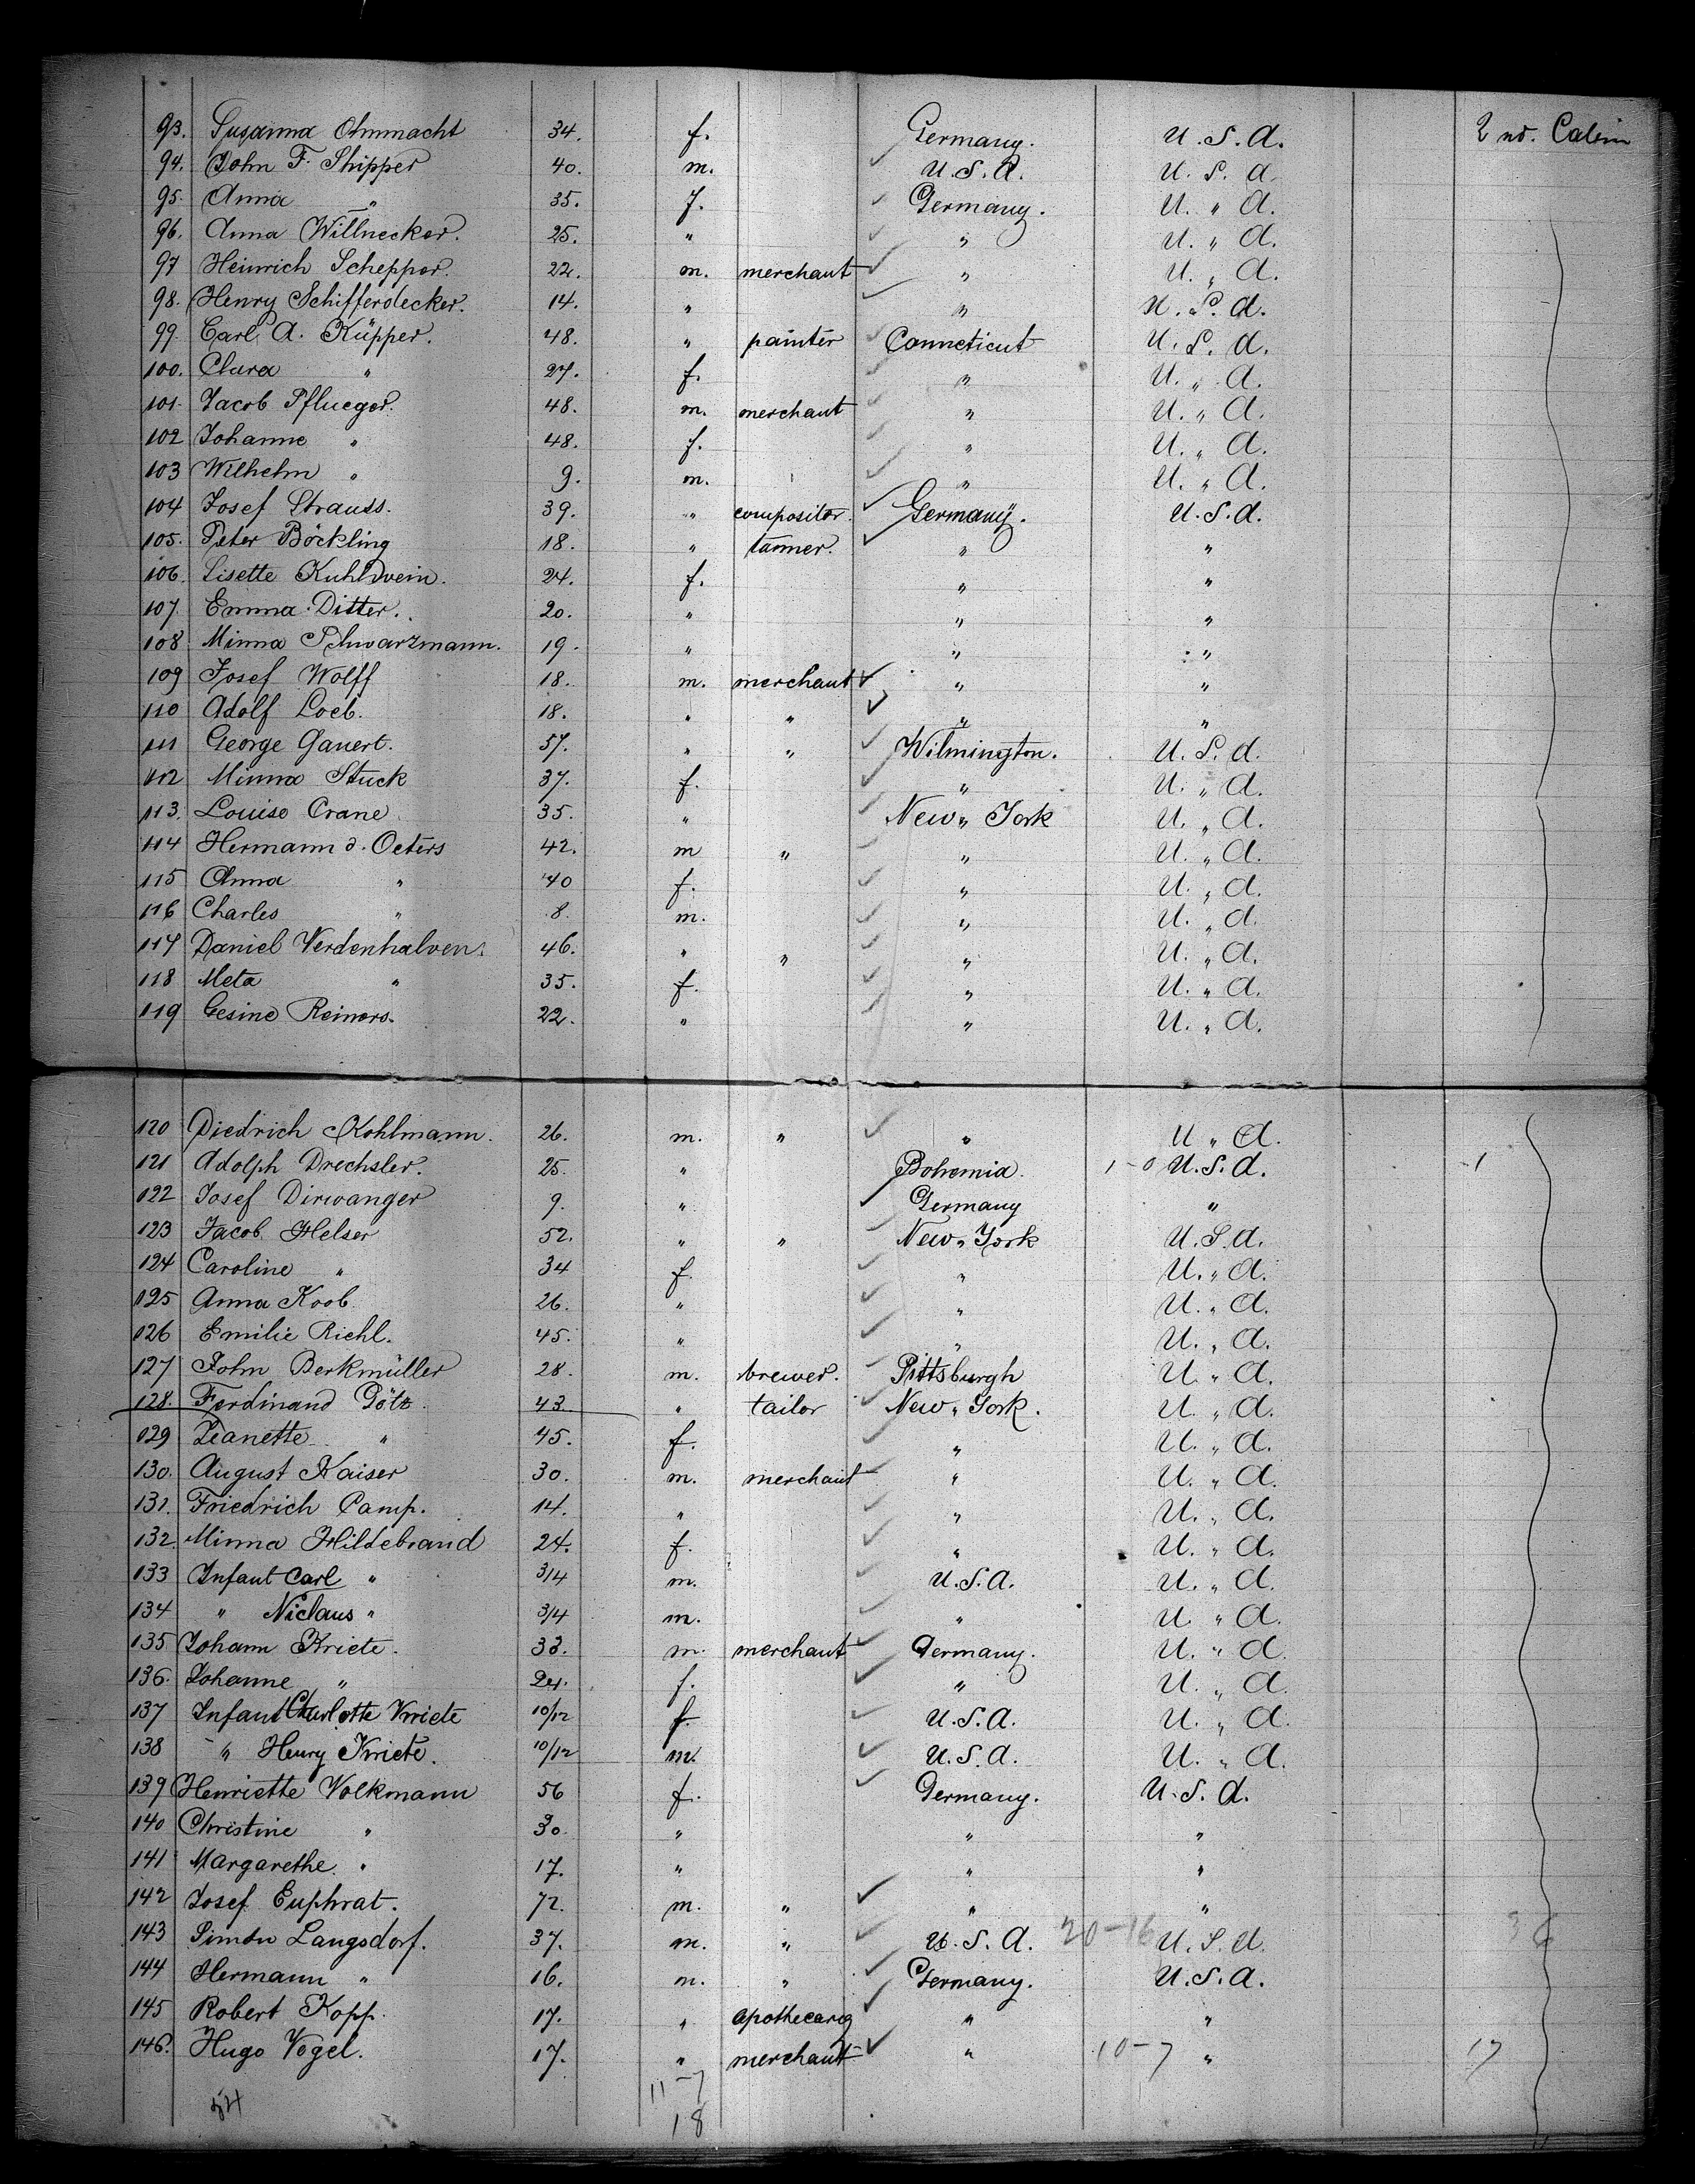 93. Susanna Ohnmacht 34. f. Germany. U.S.A. 2nd. Cabin
94. John F. Shipper 40. m. U.S.A. U.S.A.
95. Anna " 35. f. Germany. U. " A.
96. Anna Willnecker. 25. " " U. " A.
97 Heinrich Schepper. 22. m. merchant " U. " A.
98. Henry Schifferdecker. 14. " " U.S.A.
99. Carl A. Küpper. 48. " painter Conneticut U.S.A.
100. Clara " 27. f. " U. " A.
101. Jacob Pflueger. 48. m. merchant " U. " A.
102 Johanne " 48. f. " U. " A.
103 Wilhelm " 9. m. " U. " A.
104 Josef Strauss. 39. " compositor. Germany. U.S.A.
105. Peter Böckling 18. " tanner. " "
106. Lisette Kuhlwein. 24. f. " "
107. Emma Ditter. 20. " " "
108 Minna Schwarzmann. 19. " " "
109 Josef Wolff 18. m. merchant " "
110 Adolf Loeb. 18. " " " "
111 George Gauert. 57. " " Wilmington. U.S.A.
112 Minna Stuck 37. f. " U. " A.
113. Louise Crane 35. " New " York U. " A.
114 Hermann d. Oeters 42. m " " U. " A.
115 Anna " 40 f. " U. " A.
116 Charles " 8. m. " U. " A.
117 Daniel Verdenhalven. 46. " " " U. " A.
118 Meta " 35. f. " U. " A.
119 Gesine Reiners. 22. " " U. " A.
120 Diedrich Kohlmann. 26. m. " " U " A.
121 Adolph Drechsler. 25. " Bohemia. 1-0 U.S.A. 1
122 Josef Dirwanger 9. " Germany "
123 Jacob Helser 52. " " New " York U.S.A.
124 Caroline " 34 f. " U. " A.
125 Anna Koob 26. " " U. " A.
126 Emilie Riehl. 45. " " U. " A.
127 John Berkmüller 28. m. brewer. Pittsburgh U. " A.
128. Ferdinand Götz 43. " tailor New " York. U. " A.
129 Jeanette " 45. f. " U. " A.
130. August Kaiser 30. m. merchant " U. " A.
131. Friedrich Camp. 14. " " U. " A.
132. Minna Hildebrand 24. f. " U. " A.
133 Infant Carl " 3/4 m. U.S.A. U. " A.
134 " Niclaus " 3/4 m. " U. " A.
135 Johann Kriete. 33. m. merchant Germany. U. " A.
136. Johanne " 24. f. " U. " A.
137 Infant Charlotte Kriete 10/12 f. U.S.A. U. " A.
138 " Henry Kriete. 10/12 m. U.S.A. U. " A.
139 Henriette Volkmann 56 f. Germany. U.S.A.
140 Christine " 30. " " "
141 Margarethe " 17. " " "
142 Josef Euphrat. 72. m. " " "
143 Simon Langsdorf. 37. m. " U.S.A. 20-16 U.S.A. 36
144 Hermann " 16. m. " Germany. U.S.A.
145 Robert Kopp. 17. " apothecary " "
146. Hugo Vogel. 17. " merchant " 10-7 " 17
54 11-7
18